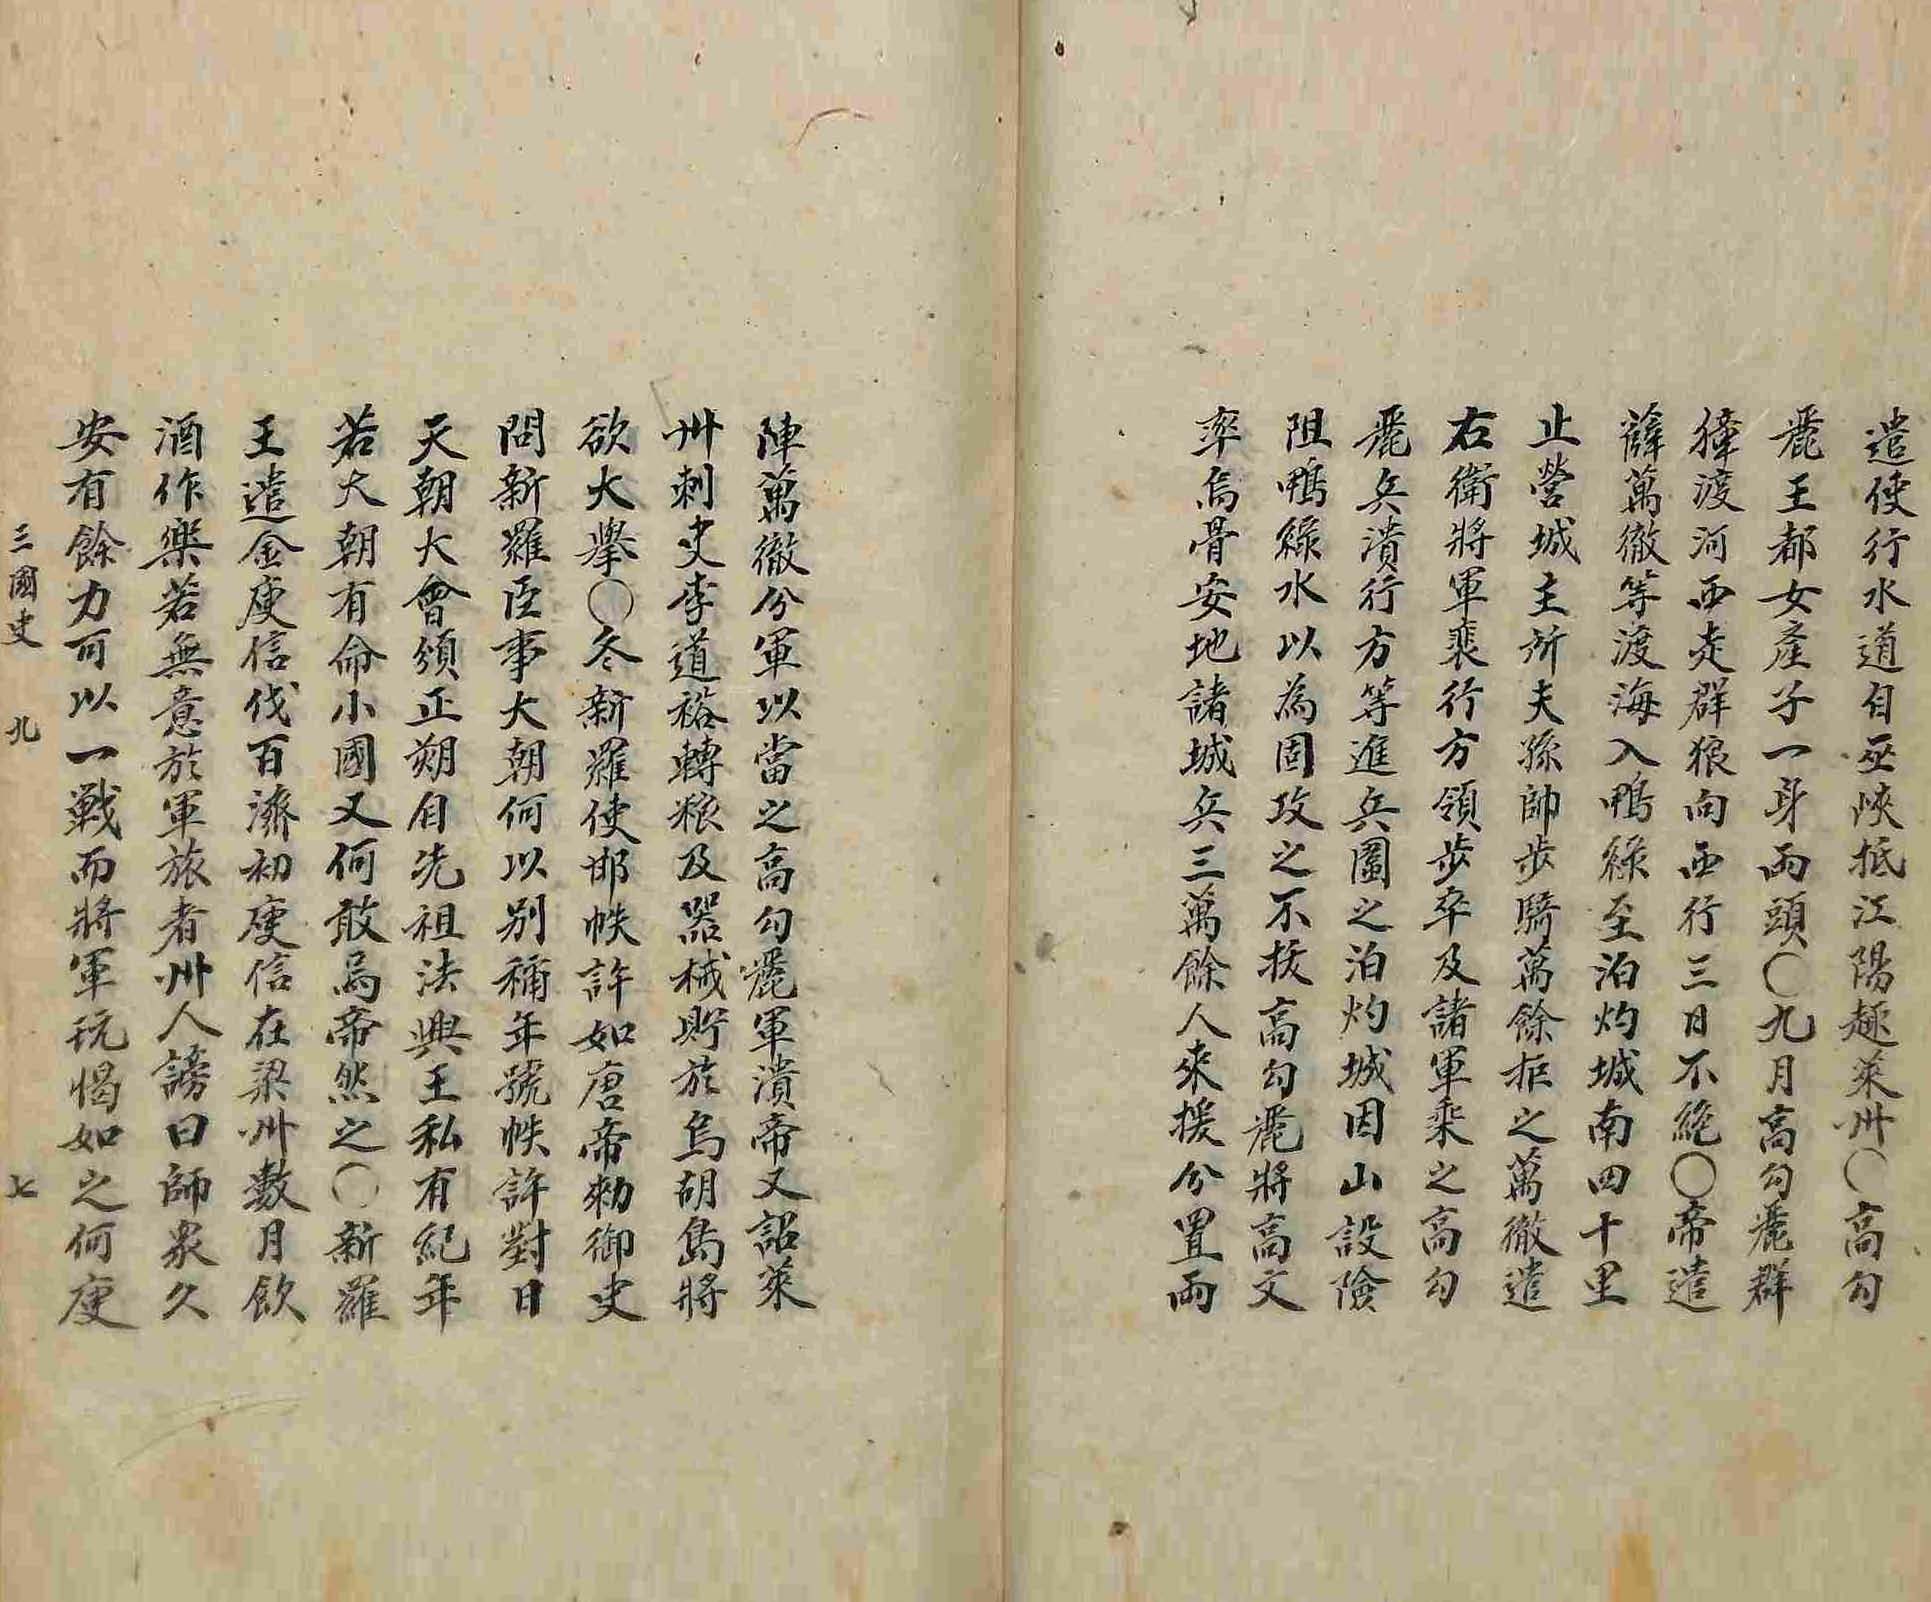 遣使行水道自巫峽抵江陽趍萊州○高句
麗王都女產子一身兩頭○九月高句麗群
獐渡河西走群狼向西行三日不絶○帝遣
薛萬徹等渡海入鴨綠至泊灼城南四十里
止營城主所夫孫帥步騎萬餘拒之萬徹遣
右衛將軍裴行方領步卒及諸軍乘之高句
麗兵潰行方等進兵圍之泊灼城因山設險
阻鴨綠水以為固攻之不拔高句麗將高文
率烏骨安地諸城兵三萬餘人來援分置兩
陣萬徹分軍以當之高句麗軍潰帝又詔萊
州刺史李道裕轉粮及器械貯於烏胡島將
欲大擧○冬新羅使邯帙許如唐帝勑御史
問新羅臣事大朝何以別稱年號帙許對曰
天朝大會頒正朔自先祖法興王私有紀年
若大朝有命小國又何敢焉帝然之○新羅
王遣金庾信伐百濟初庾信在梁州數月飮
酒作樂若無意於軍旅者州人謗曰師衆久
安有餘力可以一戰而將軍玩愒如之何庾
三國史 九 七